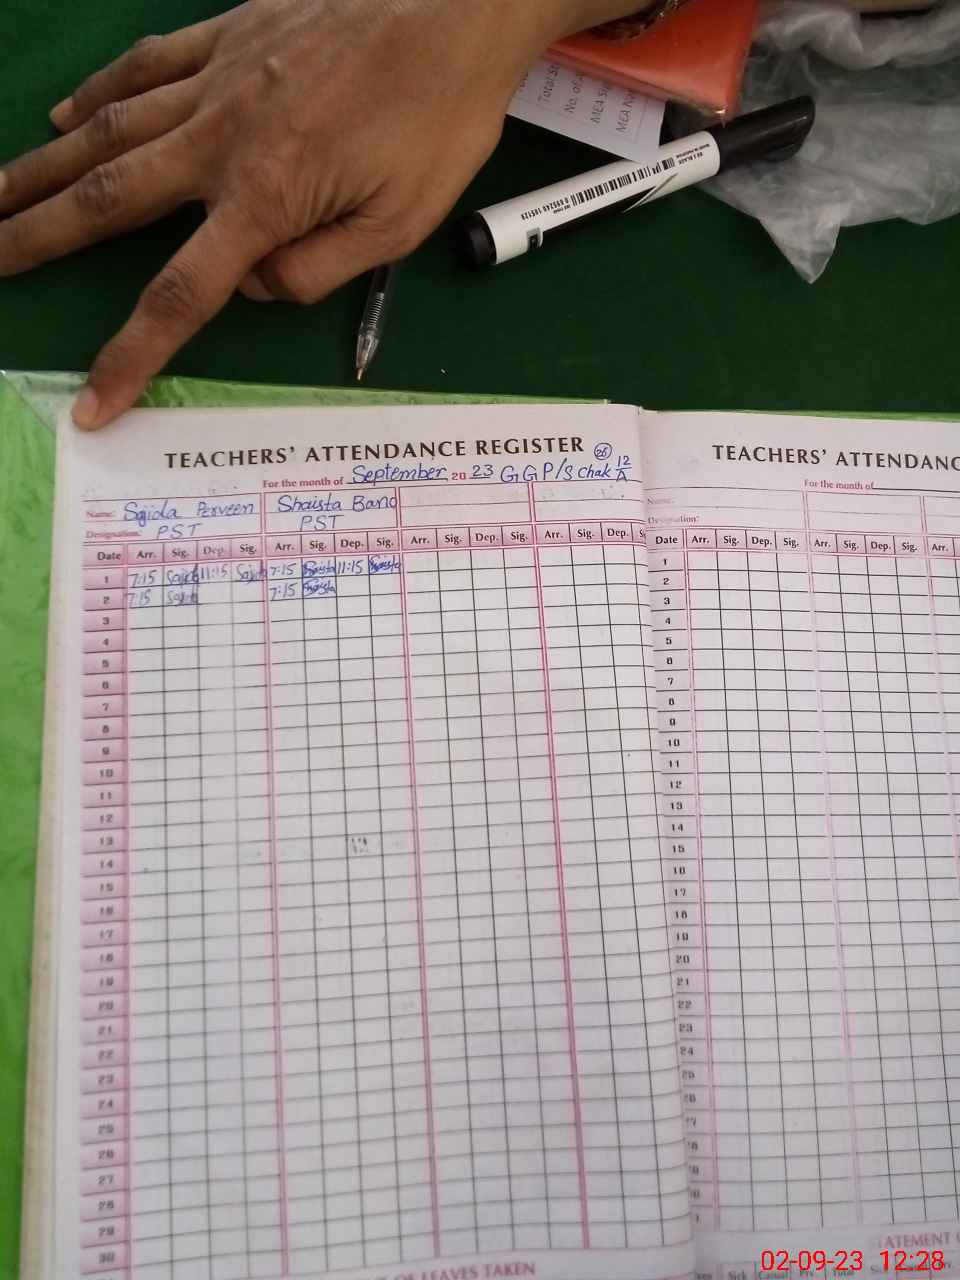 Total St
No. of
MEA
MEA
MADE IN PAKISTAN
TEACHERS' ATTENDANCE REGISTER 26
For the month of September 20 23 GGP/S Chak 12/A
Name: Sajida Perveen Shaista Bano
Designation: PST PST
Date Arr. Sig. Dep. Sig. Arr. Sig. Dep. Sig. Arr. Sig. Dep. Sig. Arr. Sig. Dep. S
1 7:15 Sajida 11:15 Sajida 7:15 Shaista 11:15 Shaista
2 7:15 Sajida 7:15 Shaista
3
4
5
6
7
8
9
10
11
12
13
14
15
16
17
18
19
20
21
22
23
24
25
26
27
28
29
30
OF LEAVES TAKEN
TEACHERS' ATTENDANC
For the month of
Name:
Designation:
Date Arr. Sig. Dep. Sig. Arr. Sig. Dep. Sig. Arr.
1
2
3
4
5
6
7
8
9
10
11
12
13
14
15
16
17
18
19
20
21
22
23
24
25
26
STATEMENT
Sick Casual Prv. Total
02-09-23 12:28